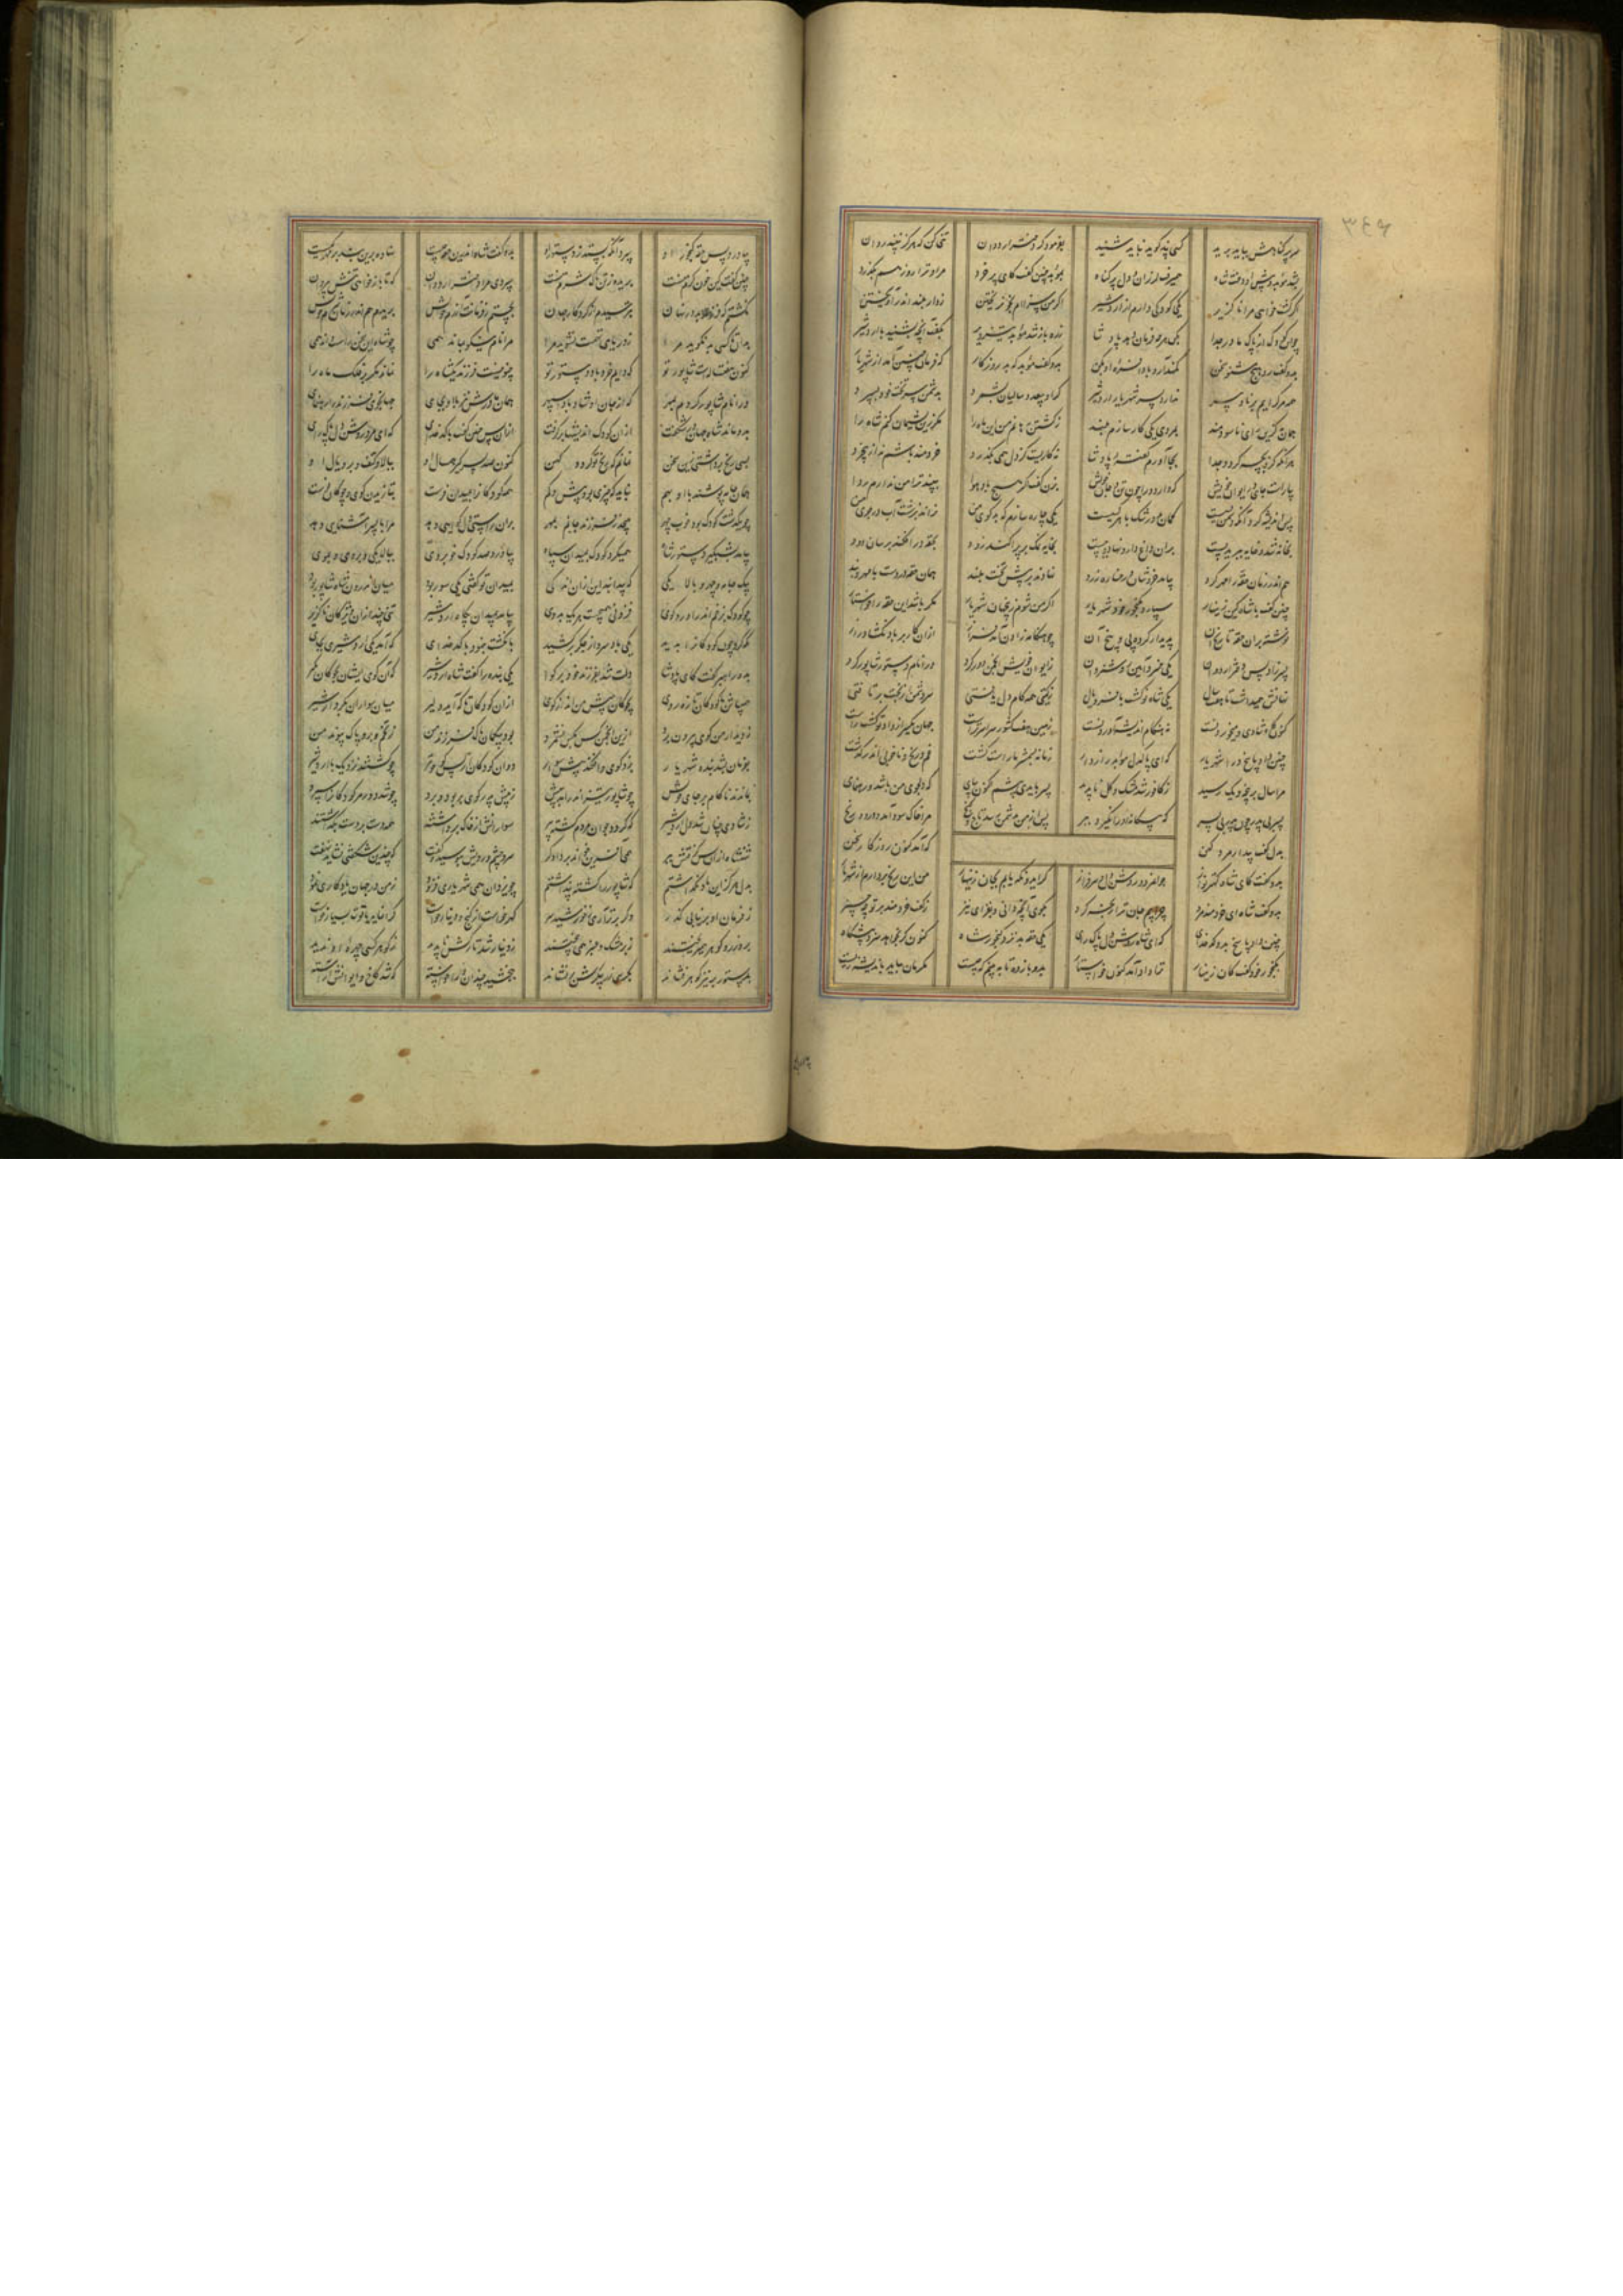 سر پر گناهش بباید برید کسی پند گوید نباید شنید بفرمود کز دختر اردوان تنی کن که هرگز نبیند روان
بشد موبد و پیش او دخت شاه همیرفت لرزان و دل پر گناه بموبد چنین گفت کای پر خرد مرا و ترا روز هم بگذرد
اگر کشت خواهی مرا ناگزیر یکی کودکی دارم از اردشیر اگر من سزاام بخون ریختن ز دار بلند اندر آویختن
چو این کودک از پاک مادر جدا بکن هرچه فرمان دهد پادشا ز ره باز شد موبد تیزویر بگفت آنچه بشنید با اردشیر
بدو گفت رو هیچ مشنو سخن کمند آر و بادافره او بکن بدو گفت موبد که بد روزگار که فرمان چنین آمد از شهریار
همه مرگ راییم برنا و پیر ندارد پسر شهریار اردشیر گر او بیعدد سالیان بشمرد بدشمن تخت خود بسپرد
همان به کزین رای ناسودمند بمردی یکی کار سازم بلند ز کشتن رهانم من این ماه را مگر زین پشیمان کنم شاه را
هر آنگه کزو بچه گردد جدا بجا آورم گفته پادشا نه کاریست کز دل همی بگذرد خردمند باشم به از بیخرد
بیاراست جایی در ایوان خویش که دارد ورا چون تن و جان خویش بزن گفت اگر هیچ باد هوا ببیند ترا من ندارم روا
پس اندیشه کرد آنکه دشمن بسیست گمان بد و نیک با هر کسیست یکی چاره سازم که بدگوی من نراند بزشت آب در جوی من
بخانه شد و خایه ببرید پست بران داغ و دارو نهاد و ببست بخایه نمک بر پراکند زود بحقه در افکند بر سان دود
هم اندر زمان حقه را مهر کرد بیامد خروشان و رخساره زرد نهادند بر پیش تخت بلند همان حقه در دست با مهر و بند
چنین گفت با شاه کین زینهار سپارد بگنجور خود شهریار اگر من شوم شهریار مگر باشد این حقه را خواستار
نوشته بران حقه تاریخ آن پدیدار کرده پی و بیخ آن چو هنگامه زادن آمد فراز ازان کار بر باد نگشاد راز
پسر زاد پس دختر اردوان یکی خسرو آیین و روشن روان ز ایوان خویش انجمن دور کرد ورا نام دستور شاپور کرد
نهانش همیداشت تا هفت سال یکی شاه نو گشت با فر و یال ز گیتی همه کام دل یافتی سر دشمن از تخت برتافتی
کنون گاه شادی و می خوردنست نه هنگام اندیشه آوردنست زمین هفت کشور سراسر تراست جهان یکسر از داد تو گشت راست
چنین داد پاسخ ورا شهریار که ای پاکدل موبد رازدار زمانه بشمشیر ما راست گشت غم و رنج و ناخوبی اندر گذشت
مرا سال بر پنجه و یک رسید ز کافور شد مشک و گل ناپدید پسر بایدی پیشم اکنون بپای که دلجوی من باشد و رهنمای
پسر بی پدر چون پدر بی پسر که بیگانه او را نگیرد ببر پس از من بدشمن رسد تاج و گنج مرا خاک سود آید و درد و رنج
بدل گفت بیدار مرد کهن که آمد کنون روزگار سخن
بدو گفت کای شاه کهتر نواز جوانمرد و روشن دل و سرفراز گر ایدونکه یابم بجان زینهار من این رنج بردارم از شهریار
بدو گفت شاه ای خردمند مرد چرا بیم جان ترا رنجه کرد بگوی آنچه دانی و بفزای نیز ز گفت خردمند برتر چه چیز
چنین داد پاسخ بدو کدخدای که ای شاه روشن دل و پاک رای یکی حقه بد نزد گنجور شاه کنون گر بخواهد سزد پیشگاه
بگنجور خود گفت کان زینهار ترا داد آمد کنون خواستار بدو باز ده تا ببینم که چیست مگرمان نباید باندیشه زیست
بیاورد پس حقه گنجور او سپرد آنکه بستد ز دستور او بدو گفت شاه اندرین حقه چیست نهاده برین بند بر مهر کیست
چنین گفت کین خون گرم منست بریده ز تن پاک شرم منست سپردی مرا دختر اردوان که تا باز خواهی تنش بیروان
نکشتم که فرزند بد در نهان بترسیدم از کردگار جهان بجستم ز فرمانت آزرم خویش بریدم هم اندر زمان شرم خویش
بدان تا کسی بد نگوید مرا ز دریای تهمت نشوید مرا مرا نام نیکو بماند همی چو شاه این سخن راست داند همی
کنون هفت سالست شاپور تو که دایم خرد باد دستور تو چنو نیست فرزند یک شاه را نماند مگر بر فلک ماه را
ورا نام شاپور کردم ز مهر که از جان او شاد بادا سپهر همان مادرش نیز با او بجای جهانجوی فرزند را رهنمای
بدو ماند شاه جهان در شگفت ازان کودک اندیشها برگرفت ازان پس چنین گفت با کدخدای که ای مرد روشن دل و پاک رای
بسی رنج برداشتی زین سخن نمانم که رنج تو گردد کهن کنون صد پسر گیر همسال او ببالا و کتف و بر و یال او
همان جامه پوشند با او بهم نباید که چیزی بود بیش و کم همه کودکان را بمیدان فرست بیازیدن گوی و چوگان فرست
چو یک دشت کودک بود خوب چهر بپیچد ز فرزند جانم بمهر بران راستی دل گواهی دهد مرا با پسر آشنایی دهد
بیامد بشبگیر دستور شاه همیکرد کودک بمیدان سپاه بیاورد صد کودک خوبروی ببالا یکی و بر و
بیک جامه و چهر و بالا یکی که پیدا نبد این ازان اندکی بمیدان تو گفتی یکی سور بود میان اندرون شاه شاپور بود
چو کودک بزخم اندر آورد گوی فزونی همیجست هر یک بدوی بیامد بمیدان بگاه اردشیر تنی چند ازان ویژگان ناگزیر
نگه کرد چون کودکان را بدید یکی باد سرد از جگر برکشید بانگشت بنمود با کدخدای که آمد یکی اردشیری بجای
بدو راهبر گفت کای پادشا دلت شد بفرزند خود بر گوا یکی بنده را گفت شاه اردشیر که آن گوی ایشان بچوگان بگیر
همیباش با کودکان تازه روی بچوگان به پیش من انداز گوی ازان کودکان تا که آید دلیر میان سواران بکردار شیر
ز دیدار من گوی بیرون برد ازین انجمن کس بکس نشمرد بود بیگمان پاک فرزند من ز تخم و بر و پاک پیوند من
بفرمان بشد بنده شهریار بزد گوی و افکند پیش سوار دوان کودکان از پس گوی و تیر چو گشتند نزدیک با اردشیر
بماندند ناکام بر جای خویش چو شاپور شیر اندر آمد به پیش ز پیش پدر گوی بربود و برد چو شد دور مر کودکان را سپرد
ز شادی چنان شد دل اردشیر که گردد جوان مردم گشته پیر سوارانش از خاک برداشتند همه دست بر دست بگذاشتند
شهنشاه ازان پس گرفتش ببر همی آفرین خواند بر دادگر سر و چشم و رویش ببوسید و گفت که چندین شگفتی نشاید نهفت
بدل هرگز این یاد نگماشتم که شاپور را کشته پنداشتم چو یزدان همی شهریاری فزود ز من در جهان یادگاری نمود
ز فرمان او بر نیابی گذر وگر برتر آری ز خورشید سر گهر خواست از گنج و دینار خواست گرانمایه یاقوت بسیار خواست
برو زر و گوهر همی ریختند زبر مشک و عنبر همی بیختند ز دینار شد تارکش ناپدید ز گوهر کسی چهره او ندید
بدستور بر نیز گوهر فشاند بکرسی زر پیکرش بر نشاند ببخشید چندان ورا خواسته که شد کاخ و ایوانش آراسته